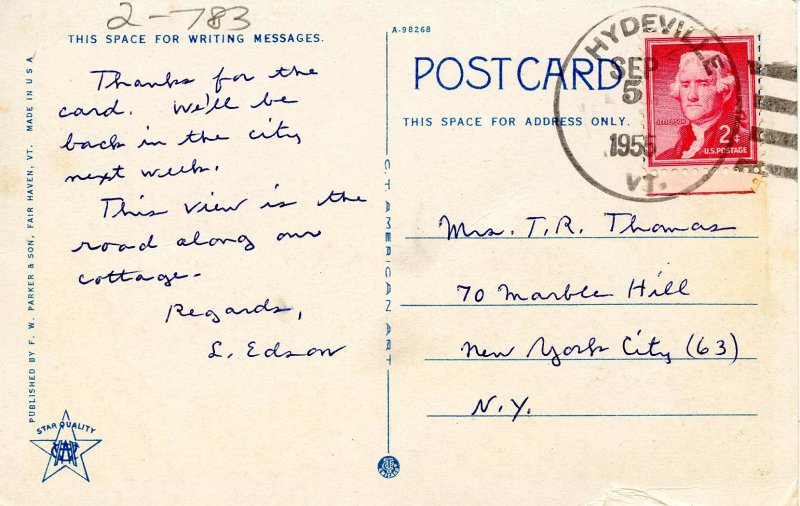 2-783
THIS SPACE FOR WRITING MESSAGES.
Thanks for the
card. We'll be
back in the city
next week.
This view is the
road along our
cottage.
Regards,
L. Edson
PUBLISHED BY F. W. PARKER & SON, FAIR HAVEN, VT. MADE IN U S A
STAR QUALITY
C. T. AMERICAN ART
A-98268
POST CARD
THIS SPACE FOR ADDRESS ONLY.
HYDEVILLE
SEP
5
1955
VT.
JEFFERSON
2¢
U.S. POSTAGE
Mrs. T.R. Thomas
70 Marble Hill
New York City (63)
N.Y.